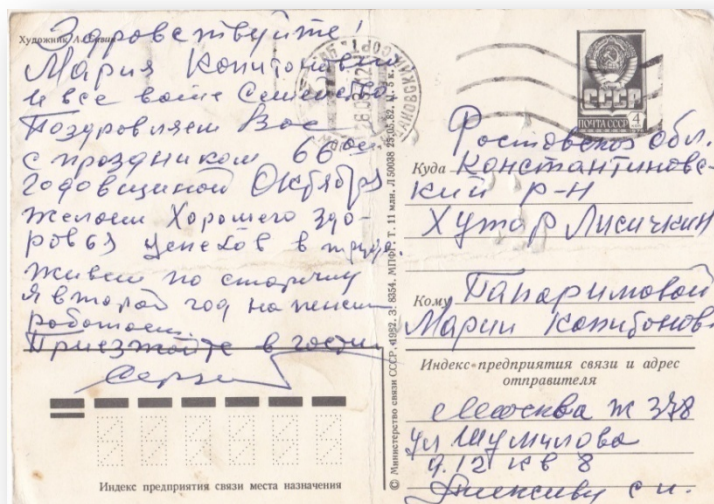 Художник А.
Здровствуйте!
Мария Капитоновна
и все ваше Семейство
Поздровляем Вас
с праздником 66 ой
годовщиной Октября
желаем Хорошего здо-
ровья успехов в труде
живем по старому
я второй год на пенсии
работаем.
Приезжайте в гости
Индекс предприятия связи места назначения
© Министерство связи СССР. 1982. З. 8354. МПФГ. Т. 11 млн. Л 50038 25.05.82. Ц. 5 к.
СССР
ПОЧТА СССР 4
Куда
Ростовской обл.
Константиновс-
кий р-н
Хутор Лисичкин
Кому
Марии Капитонов
Индекс предприятия связи и адрес
отправителя
Москва ж 378
ул Шумилова
д. 12 кв 8